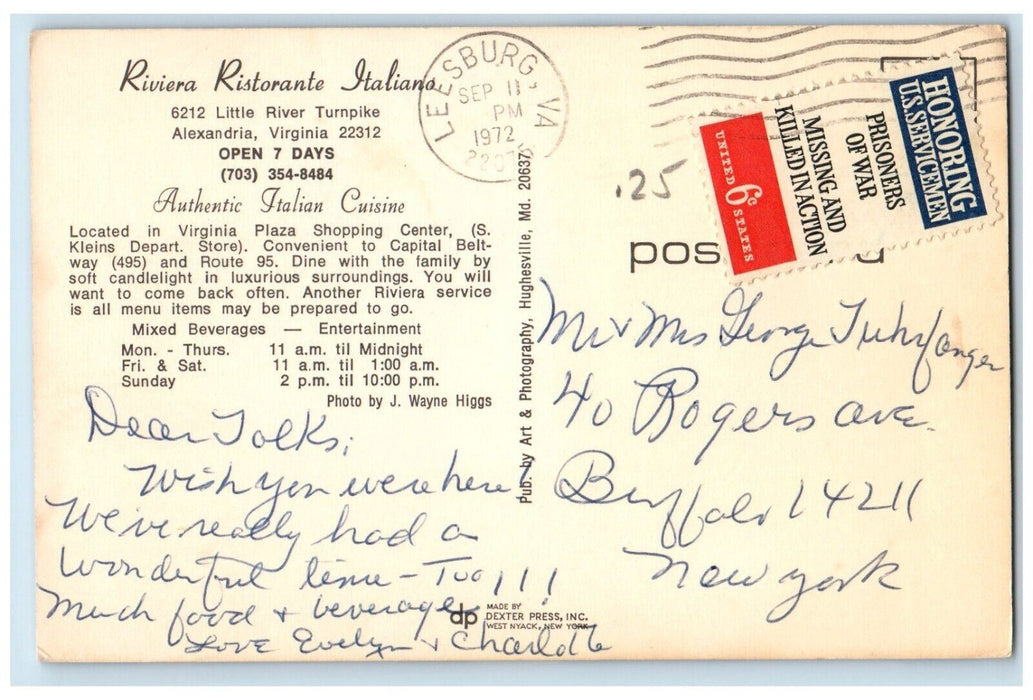 Riviera Ristorante Italiano
6212 Little River Turnpike
Alexandria, Virginia 22312
OPEN 7 DAYS
(703) 354-8484
Authentic Italian Cuisine
Located in Virginia Plaza Shopping Center, (S.
Kleins Depart. Store). Convenient to Capital Belt-
way (495) and Route 95. Dine with the family by
soft candlelight in luxurious surroundings. You will
want to come back often. Another Riviera service
is all menu items may be prepared to go.
Mixed Beverages — Entertainment
Mon. - Thurs. 11 a.m. til Midnight
Fri. & Sat. 11 a.m. til 1:00 a.m.
Sunday 2 p.m. til 10:00 p.m.
Photo by J. Wayne Higgs
Dear Folks;
Wish you were here!
We've really had a
wonderful time - Too!!!
Much food & beverage
Love Evelyn & Charlotte
LEESBURG, VA
SEP 11
PM
1972
Pub. by Art & Photography, Hughesville, Md. 20637
dp
MADE BY
DEXTER PRESS, INC.
WEST NYACK, NEW YORK
.25
UNITED 6c STATES
MISSING AND
KILLED IN ACTION
PRISONERS
OF WAR
HONORING
U.S. SERVICEMEN
pos
Mr & Mrs George
40 Rogers ave.
Buffalo 14211
New york